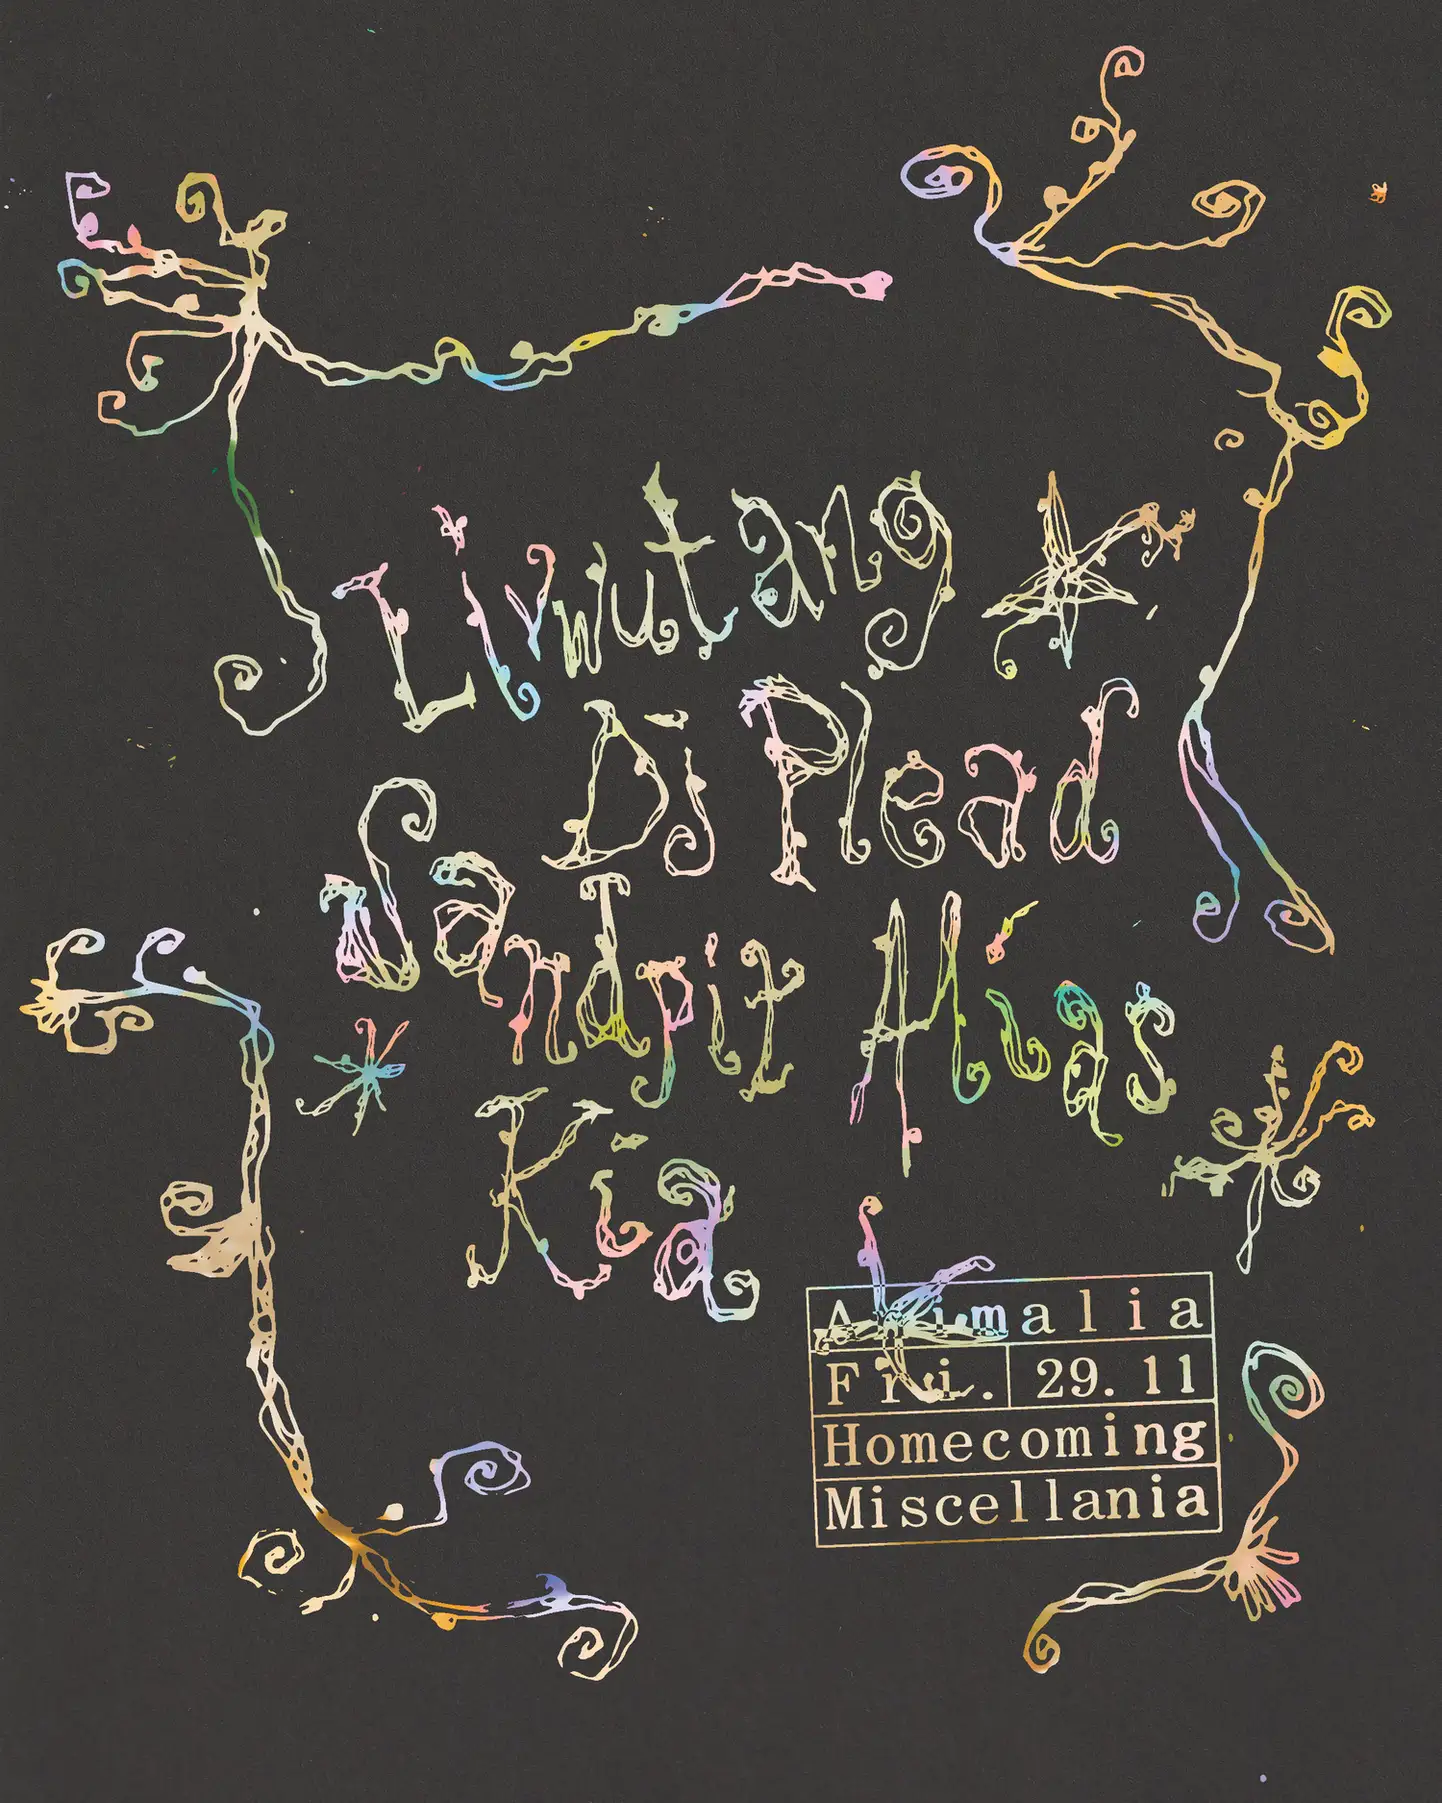 Livwutang
Dj Plead
Sandpit Alias
Kia
Animalia
Fri. 29.11
Homecoming
Miscellania